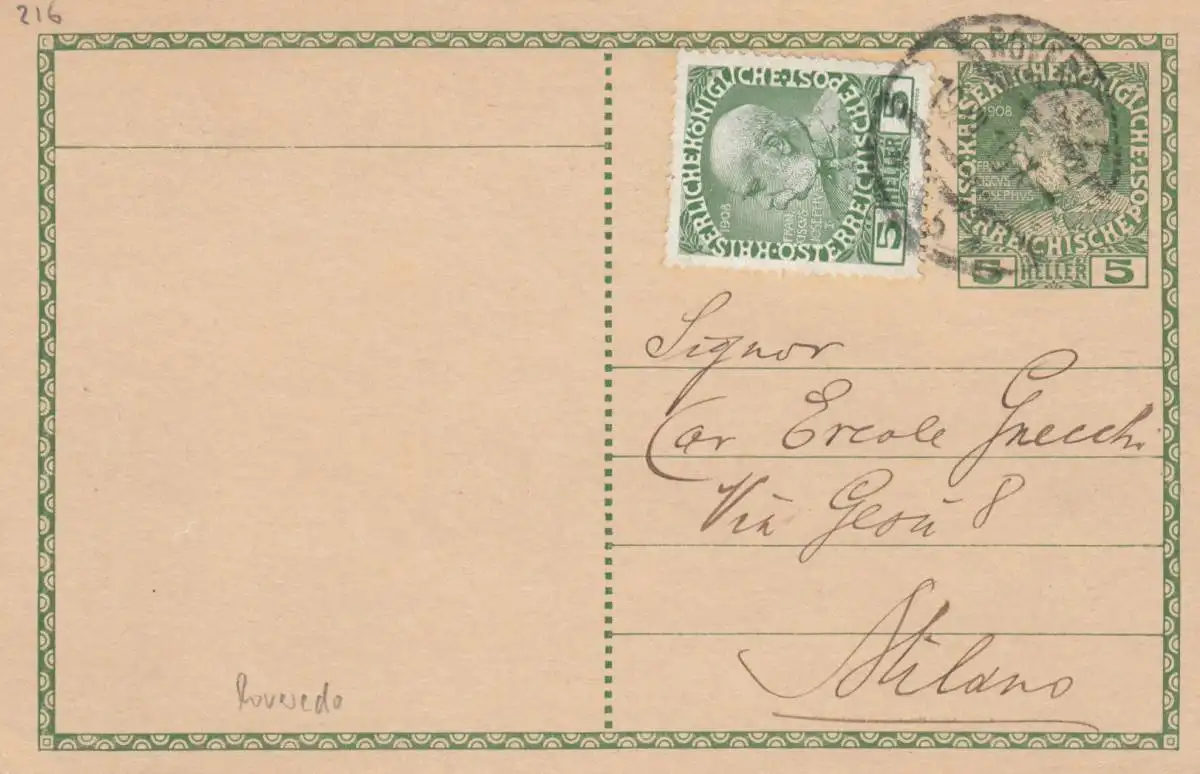 216
KAISERLICHE KÖNIGLICHE ÖSTERREICHISCHE POST
1908
FRANCISCVS
IOSEPHVS
5 HELLER 5
KAISERLICHE KÖNIGLICHE ÖSTERREICHISCHE POST
1908
FRANCISCVS
IOSEPHVS
5 HELLER 5
Signor
Cav Ercole Gnecchi
Via Gesù 8
Milano
Rovereto